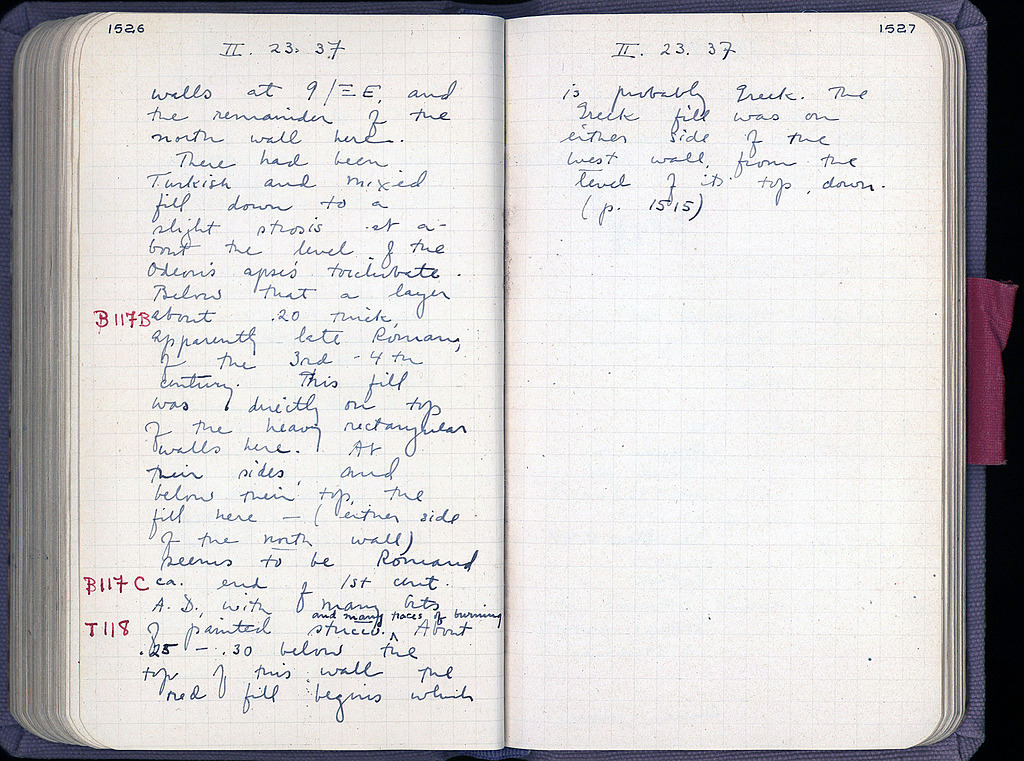 1526
II. 23. 37
walls at 9/ΞE, and
the remainder of the
north wall here.
There had been
Turkish and mixed
fill down to a
slight strosis at a-
bout the level of the
Odeon's apse's toichobate.
Below that a layer
B117B about .20 thick,
apparently late Roman,
of the 3rd - 4th
century. This fill
was directly on top
of the heavy rectangular
walls here. At
their sides, and
below their top, the
fill here — (either side
of the north wall)
seems to be Roman
B117C ca. end of 1st cent.
A.D., with many bits
and many traces of burning
T118 of painted stucco. ^ About
.25 - .30 below the
top of this wall the
red fill begins which
1527
II. 23. 37
is probably Greek. The
Greek fill was on
either side of the
west wall, from the
level of its top, down.
(p. 1515)